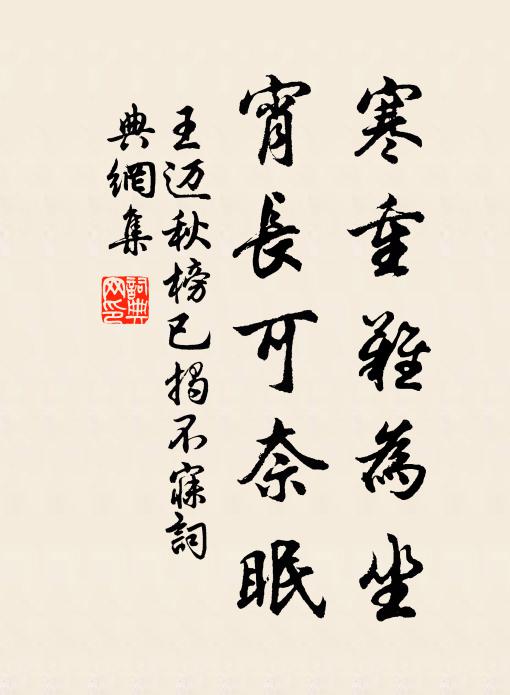 寒重難為坐
宵長可奈眠
王迈秋榜已揭不寐詞
典網集
詞典網印